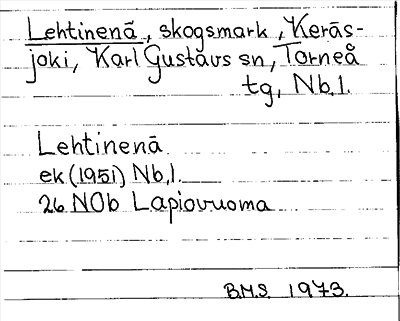 Lehtinenä, skogsmark, Keräs-
joki, Karl Gustavs sn, Torneå
tg, Nb.l.
Lehtinenä
ek (1951) Nb,l.
26 NOb Lapiovuoma
B.M.S. 1973.